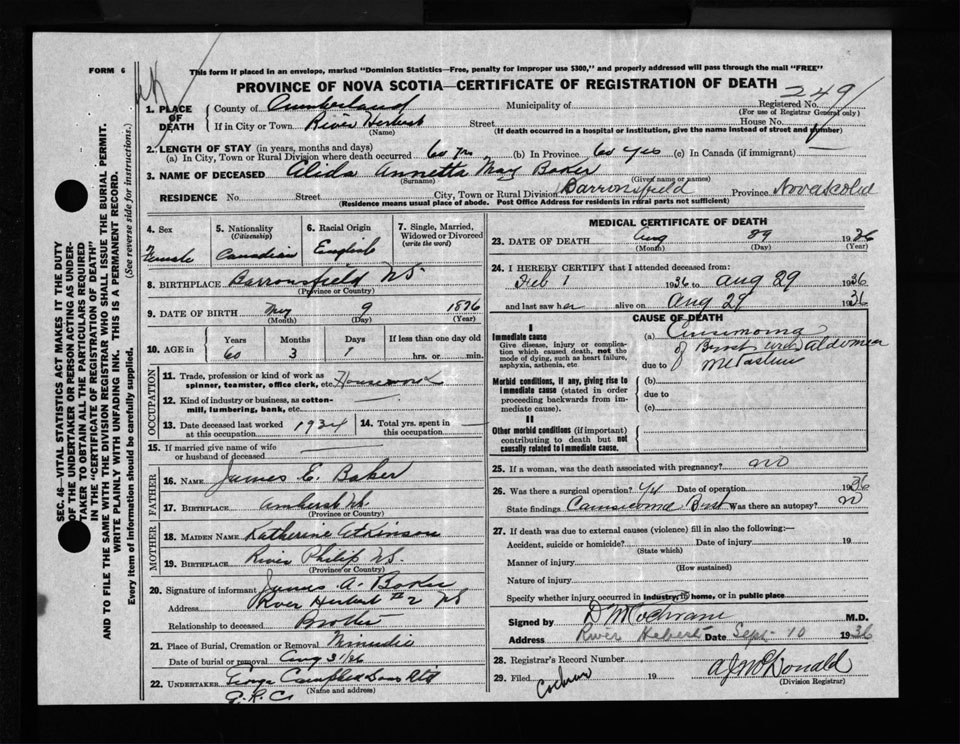 FORM 6
This form if placed in an envelope, marked "Dominion Statistics—Free, penalty for improper use $300," and properly addressed will pass through the mail "FREE"
PROVINCE OF NOVA SCOTIA—CERTIFICATE OF REGISTRATION OF DEATH
249
1. PLACE OF DEATH
County of Cumberland Municipality of Registered No.
(For use of Registrar General only)
If in City or Town River Hebert Street House No.
(Name) (If death occurred in a hospital or institution, give the name instead of street and number)
2. LENGTH OF STAY (in years, months and days)
(a) In City, Town or Rural Division where death occurred 60 yrs (b) In Province 60 yrs (c) In Canada (if immigrant)
3. NAME OF DECEASED Alida Annetta May Baker
(Surname) (Given name or names)
RESIDENCE No. Street City, Town or Rural Division Barronsfield Province Nova Scotia
(Residence means usual place of abode. Post Office Address for residents in rural parts not sufficient)
SEC. 46—VITAL STATISTICS ACT MAKES IT THE DUTY
OF THE UNDERTAKER OR PERSON ACTING AS UNDER-
TAKER TO OBTAIN ALL THE PARTICULARS REQUIRED
IN THE "CERTIFICATE OF REGISTRATION OF DEATH"
AND TO FILE THE SAME WITH THE DIVISION REGISTRAR WHO SHALL ISSUE THE BURIAL PERMIT.
WRITE PLAINLY WITH UNFADING INK. THIS IS A PERMANENT RECORD.
Every item of information should be carefully supplied. (See reverse side for instructions.)
4. Sex
Female
5. Nationality
(Citizenship)
Canadian
6. Racial Origin
English
7. Single, Married,
Widowed or Divorced
(write the word)
8. BIRTHPLACE Barronsfield NS
(Province or Country)
9. DATE OF BIRTH May 9 1876
(Month) (Day) (Year)
10. AGE in
Years Months Days If less than one day old
60 3 1 hrs. or min.
OCCUPATION
11. Trade, profession or kind of work as
spinner, teamster, office clerk, etc. Housework
12. Kind of industry or business, as cotton-
mill, lumbering, bank, etc.
13. Date deceased last worked
at this occupation 1934
14. Total yrs. spent in
this occupation
15. If married give name of wife
or husband of deceased
FATHER
16. NAME James E. Baker
17. BIRTHPLACE Amherst NS
(Province or Country)
MOTHER
18. MAIDEN NAME Katherine Atkinson
19. BIRTHPLACE River Philip NS
(Province or Country)
20. Signature of informant James A. Baker
Address River Hebert #2 NS
Relationship to deceased Brother
21. Place of Burial, Cremation or Removal Minudie
Date of burial or removal Aug 31/36
22. UNDERTAKER George Campbell Sons Ltd
(Name and address)
MEDICAL CERTIFICATE OF DEATH
23. DATE OF DEATH Aug 29 1936
(Month) (Day) (Year)
24. I HEREBY CERTIFY that I attended deceased from:
Feb 1 1936 to Aug 29 1936
and last saw her alive on Aug 29 1936
CAUSE OF DEATH
I
Immediate cause
Give disease, injury or complica-
tion which caused death, not the
mode of dying, such as heart failure,
asphyxia, asthenia, etc
(a) Carcinoma
of Breast with abdominal
due to metastasis
Morbid conditions, if any, giving rise to
immediate cause (stated in order
proceeding backwards from im-
mediate cause).
(b)
due to
(c)
II
Other morbid conditions (if important)
contributing to death but not
causally related to immediate cause.
25. If a woman, was the death associated with pregnancy? no
26. Was there a surgical operation? Yes Date of operation 1936
State findings Carcinoma Breast Was there an autopsy? No
27. If death was due to external causes (violence) fill in also the following:—
Accident, suicide or homicide? Date of injury 19
(State which)
Manner of injury
(How sustained)
Nature of injury
Specify whether injury occurred in industry, in home, or in public place
Signed by D M Cochrane M.D.
Address River Hebert Date Sept 10 1936
28. Registrar's Record Number
29. Filed 19 A J McDonald
(Division Registrar)